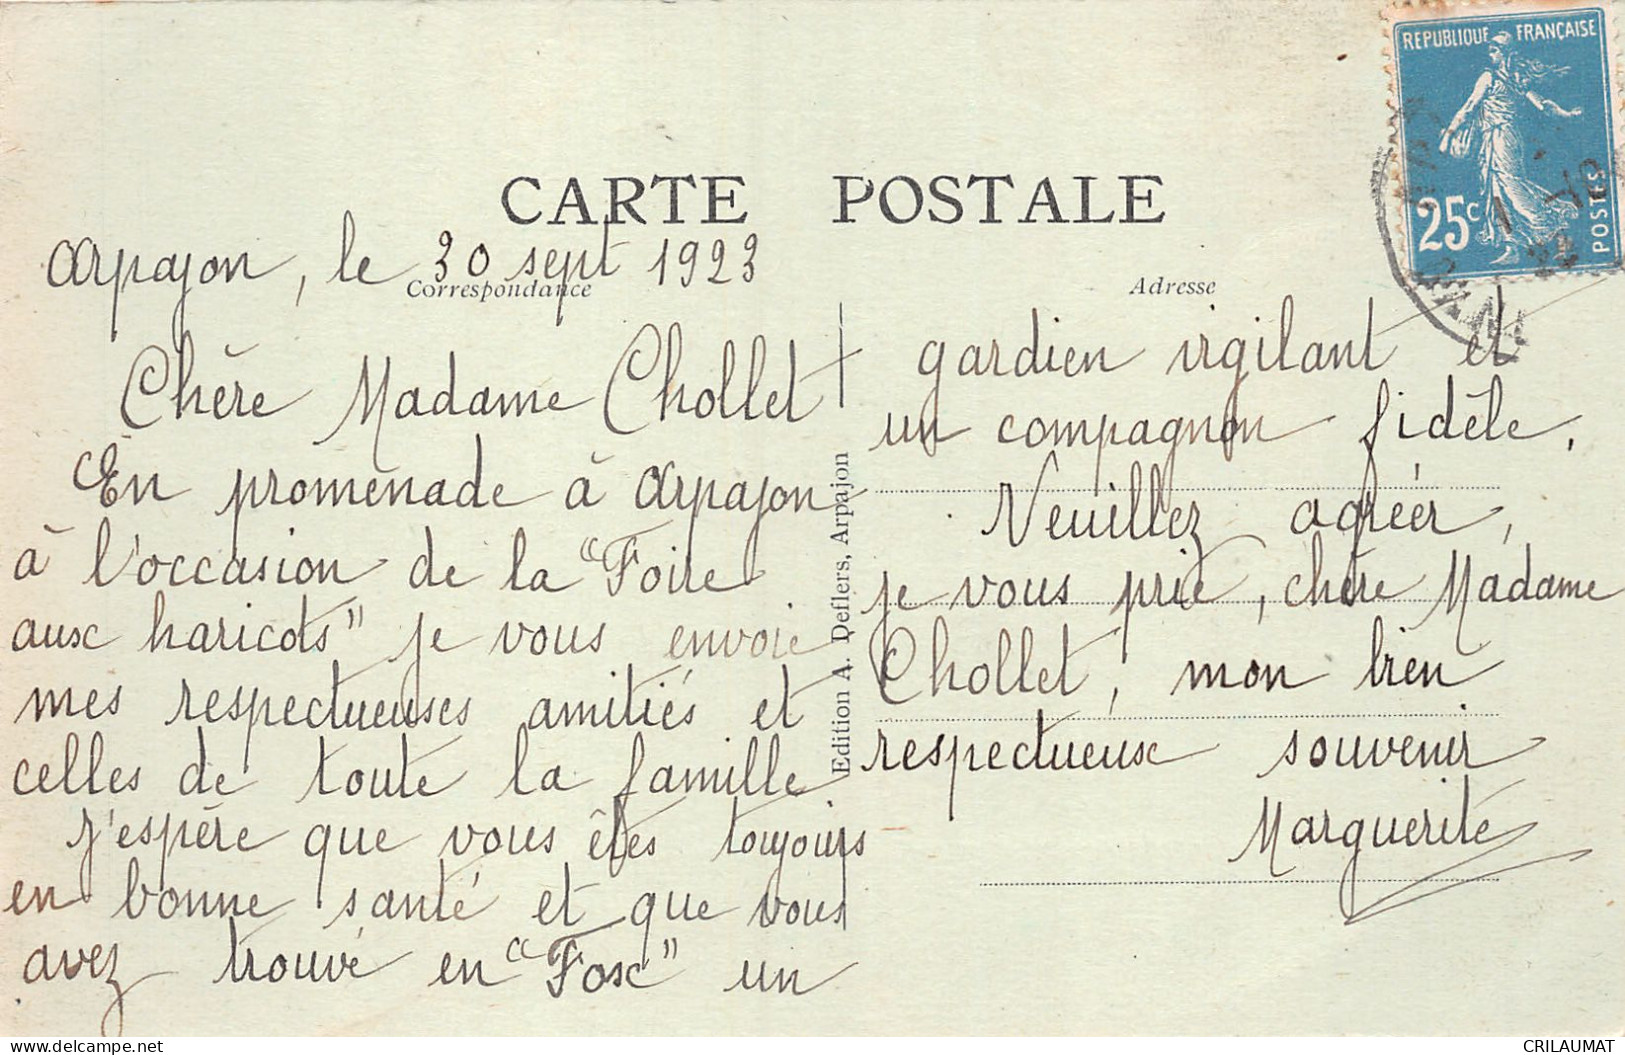 REPUBLIQUE FRANÇAISE
25c
POSTES
CARTE POSTALE
Arpajon, le 30 sept 1923
Correspondance
Adresse
Chère Madame Chollet
En promenade à Arpajon
à l'occasion de la "Foire
aux haricots" je vous envoie
mes respectueuses amitiés et
celles de toute la famille
J'espère que vous êtes toujours
en bonne santé et que vous
avez trouvé en "Fox" un
Edition A. Deflers, Arpajon
gardien vigilant et
un compagnon fidèle.
Veuillez agréer,
je vous prie, chère Madame
Chollet, mon bien
respectueux souvenir
Marguerite
CRILAUMAT